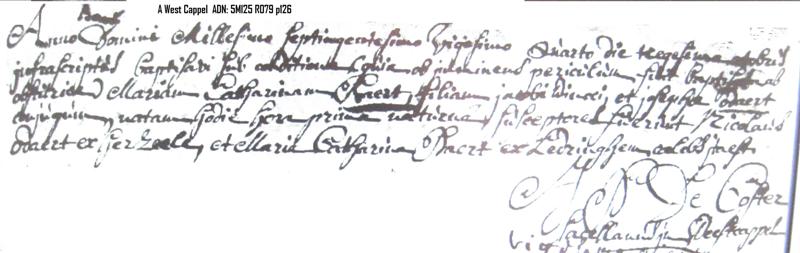 A West Cappel ADN: 5MI25 R079 p126
Baert
Anno Domini Millesimo septingentesimo vigesimo quarto die
infrascriptus baptisavi sub conditione (quia ob imminens periculum fuit baptisata ab
obstetrice) Mariam Catharinam Baert filiam jacobi et josepha Odaert
conjugum, natam hodie hora prima nocturna, susceperunt fuerunt Nicolaus
Odaert ex herzeele, et Maria Catharina Baert ex Ledringhem
De Coster
Sacellanus in Westcappel